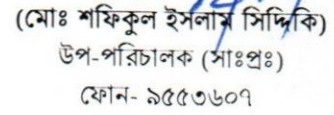 (মোঃ শফিকুল ইসলাম সিদ্দিকি)
উপ-পরিচালক (সাঃপ্রঃ)
ফোন- ৯৫৫৩৬০৭